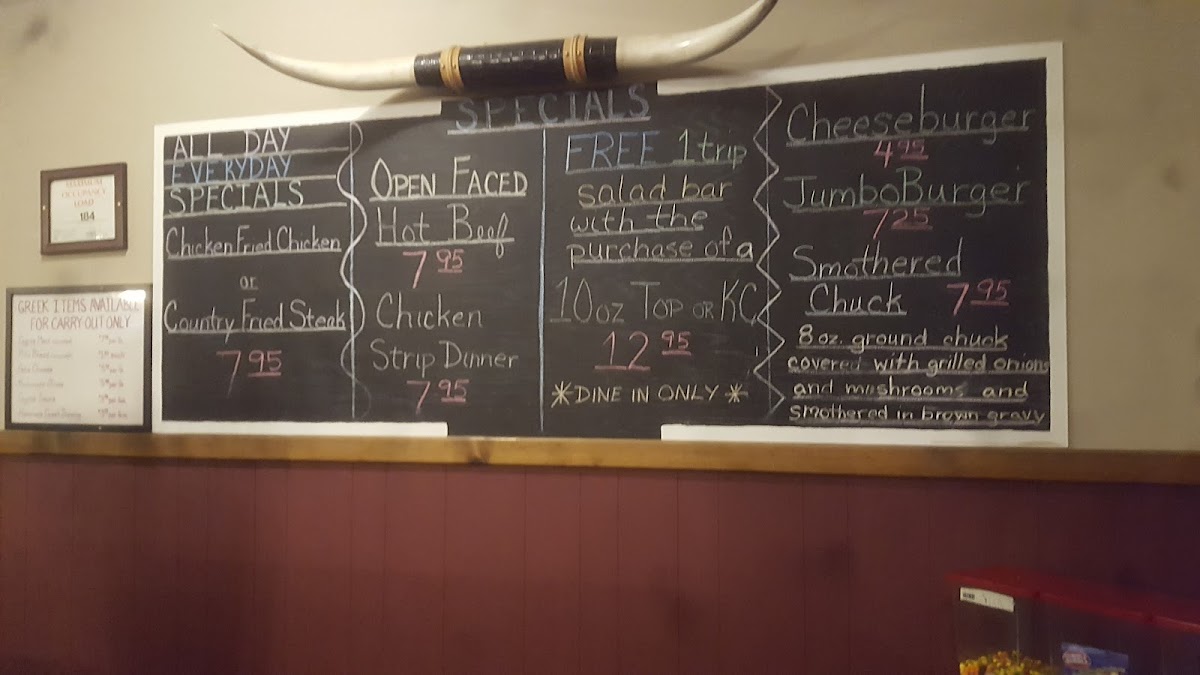 SPECIALS
ALL DAY
EVERYDAY
SPECIALS
Chicken Fried Chicken
or
Country Fried Steak
7 95
OPEN FACED
Hot Beef
7 95
Chicken
Strip Dinner
7 95
FREE 1 trip
salad bar
with the
purchase of a
10oz TOP OR KC
12 95
*DINE IN ONLY*
Cheeseburger
4 95
JumboBurger
7 25
Smothered
Chuck 7 95
8 oz. ground chuck
covered with grilled onions
and mushrooms and
smothered in brown gravy
MAXIMUM
OCCUPANCY
LOAD
184
GREEK ITEMS AVAILABLE
FOR CARRY OUT ONLY